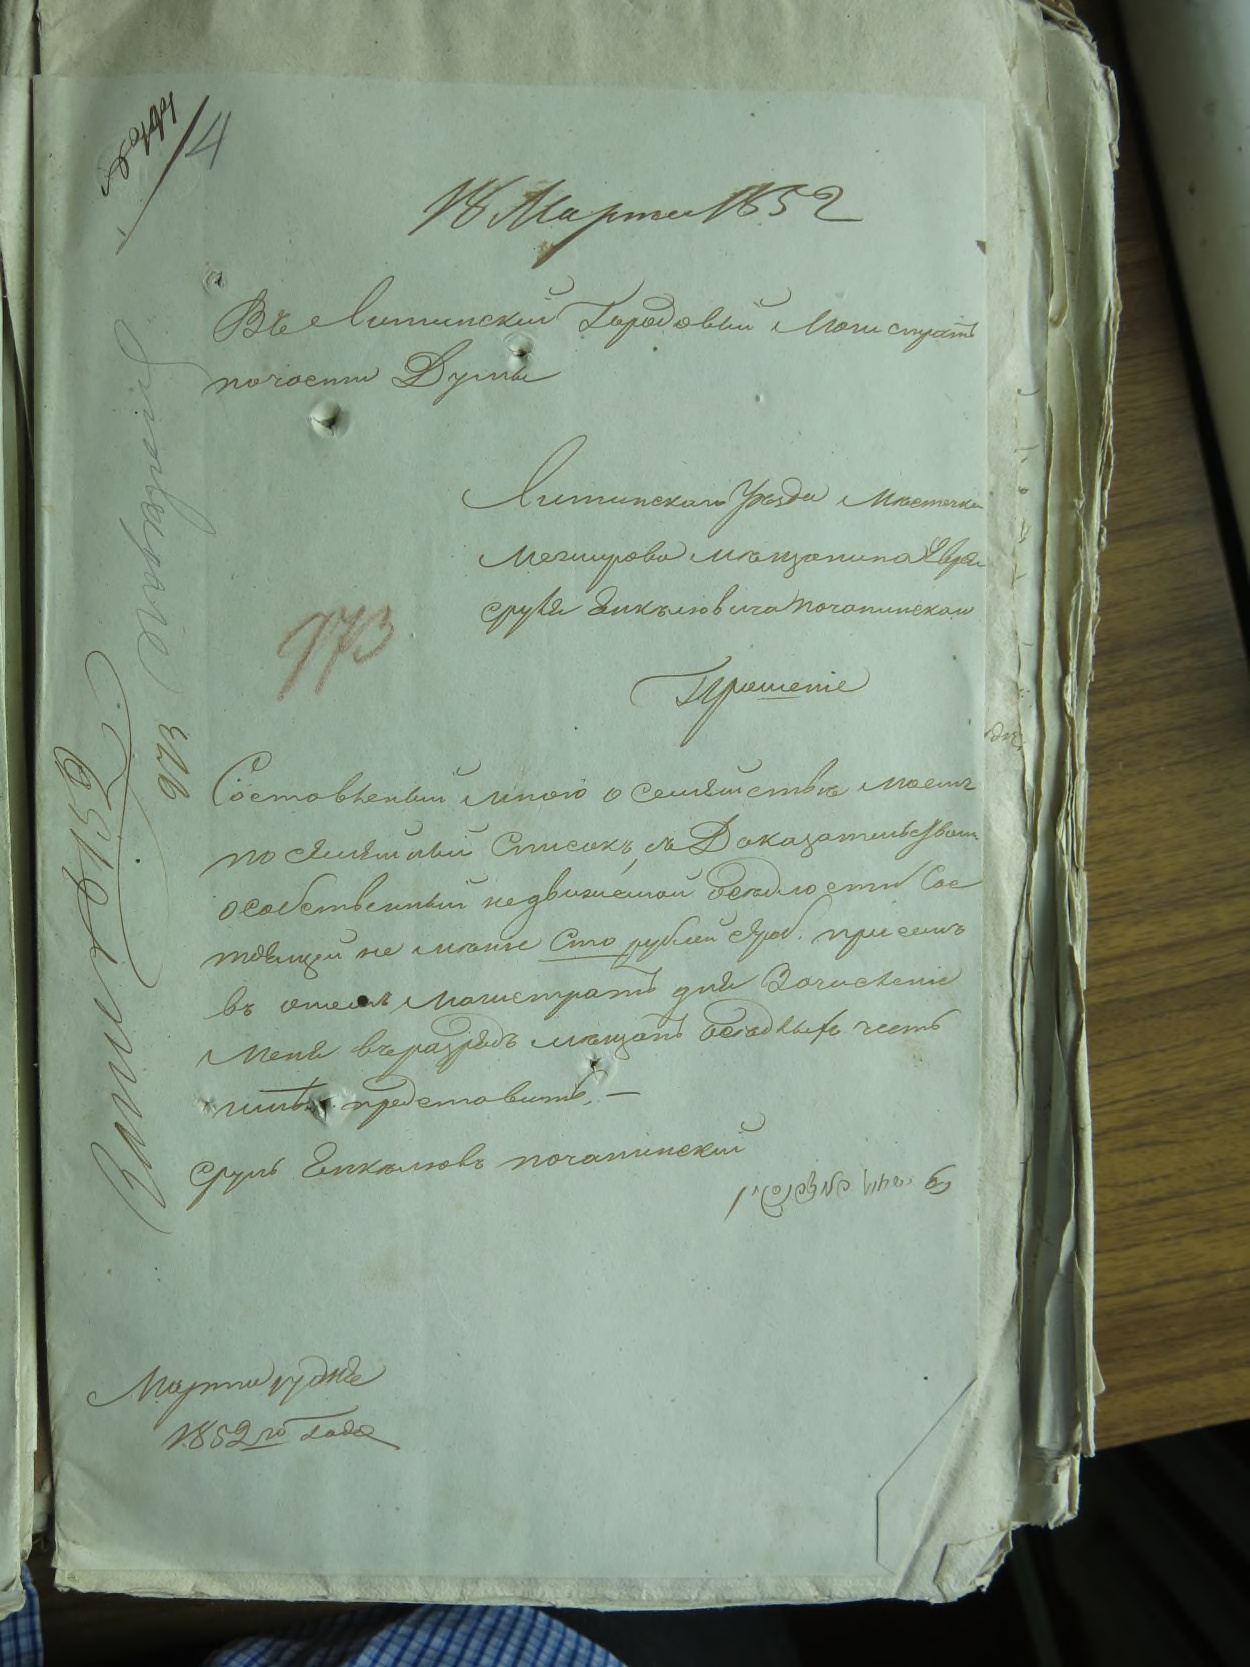 4
18 Марта 1852
Въ Литинский Городовый Магистратъ
по части Думы
Литинскаго Уѣзда Мѣстечка
Межирова мѣщанина Еврея
Сруля Янкелювича Почапинскаго
973
Прошеніе
Составленный мною о семействѣ моемъ
посемейный Списокъ, съ Доказательствомъ
особственный недвижемой осѣдлости Сос
тоящей не менѣе Сто рублей сереб. при семъ
въ Магистратъ для Зачисленіе
меня въ разрядъ мещанъ осѣдлыхъ честь
имѣю представить, —
Сруль Янкелювъ Почапинский
Марта дня
1852го года
973